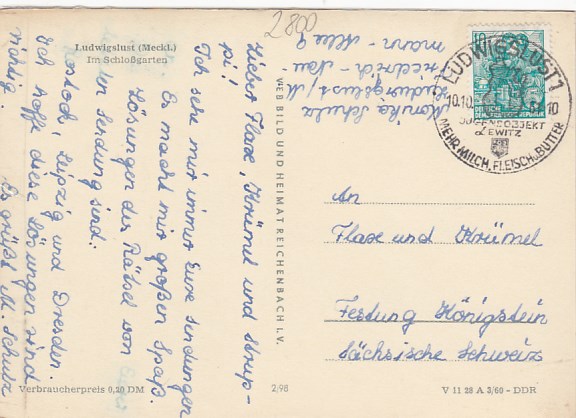 2800
Ludwigslust (Meckl.)
Im Schloßgarten
Lieber Flaxe, Krümel und Strup-
pi!
Ich sehe mir immer Eure Sendungen
Es macht mir großen Spaß.
Lösungen des Rätsel von
der Sendung sind:
Rostock, Leipzig und Dresden.
Ich hoffe diese Lösungen sind
richtig.
Es grüßt M. Schulz
Monika Schulz
Ludwigslust/M.
Friedrich-Nau-
mann-Allee 9
VEB BILD UND HEIMAT REICHENBACH I. V.
LUDWIGSLUST 1
10.10
10
JUGENDOBJEKT
LEWITZ
MEHR MILCH, FLEISCH u. BUTTER
10
An
Flaxe und Krümel
Festung Königstein
Sächsische Schweiz
Verbraucherpreis 0,20 DM
2/98
V 11 28 A 3/60 - DDR